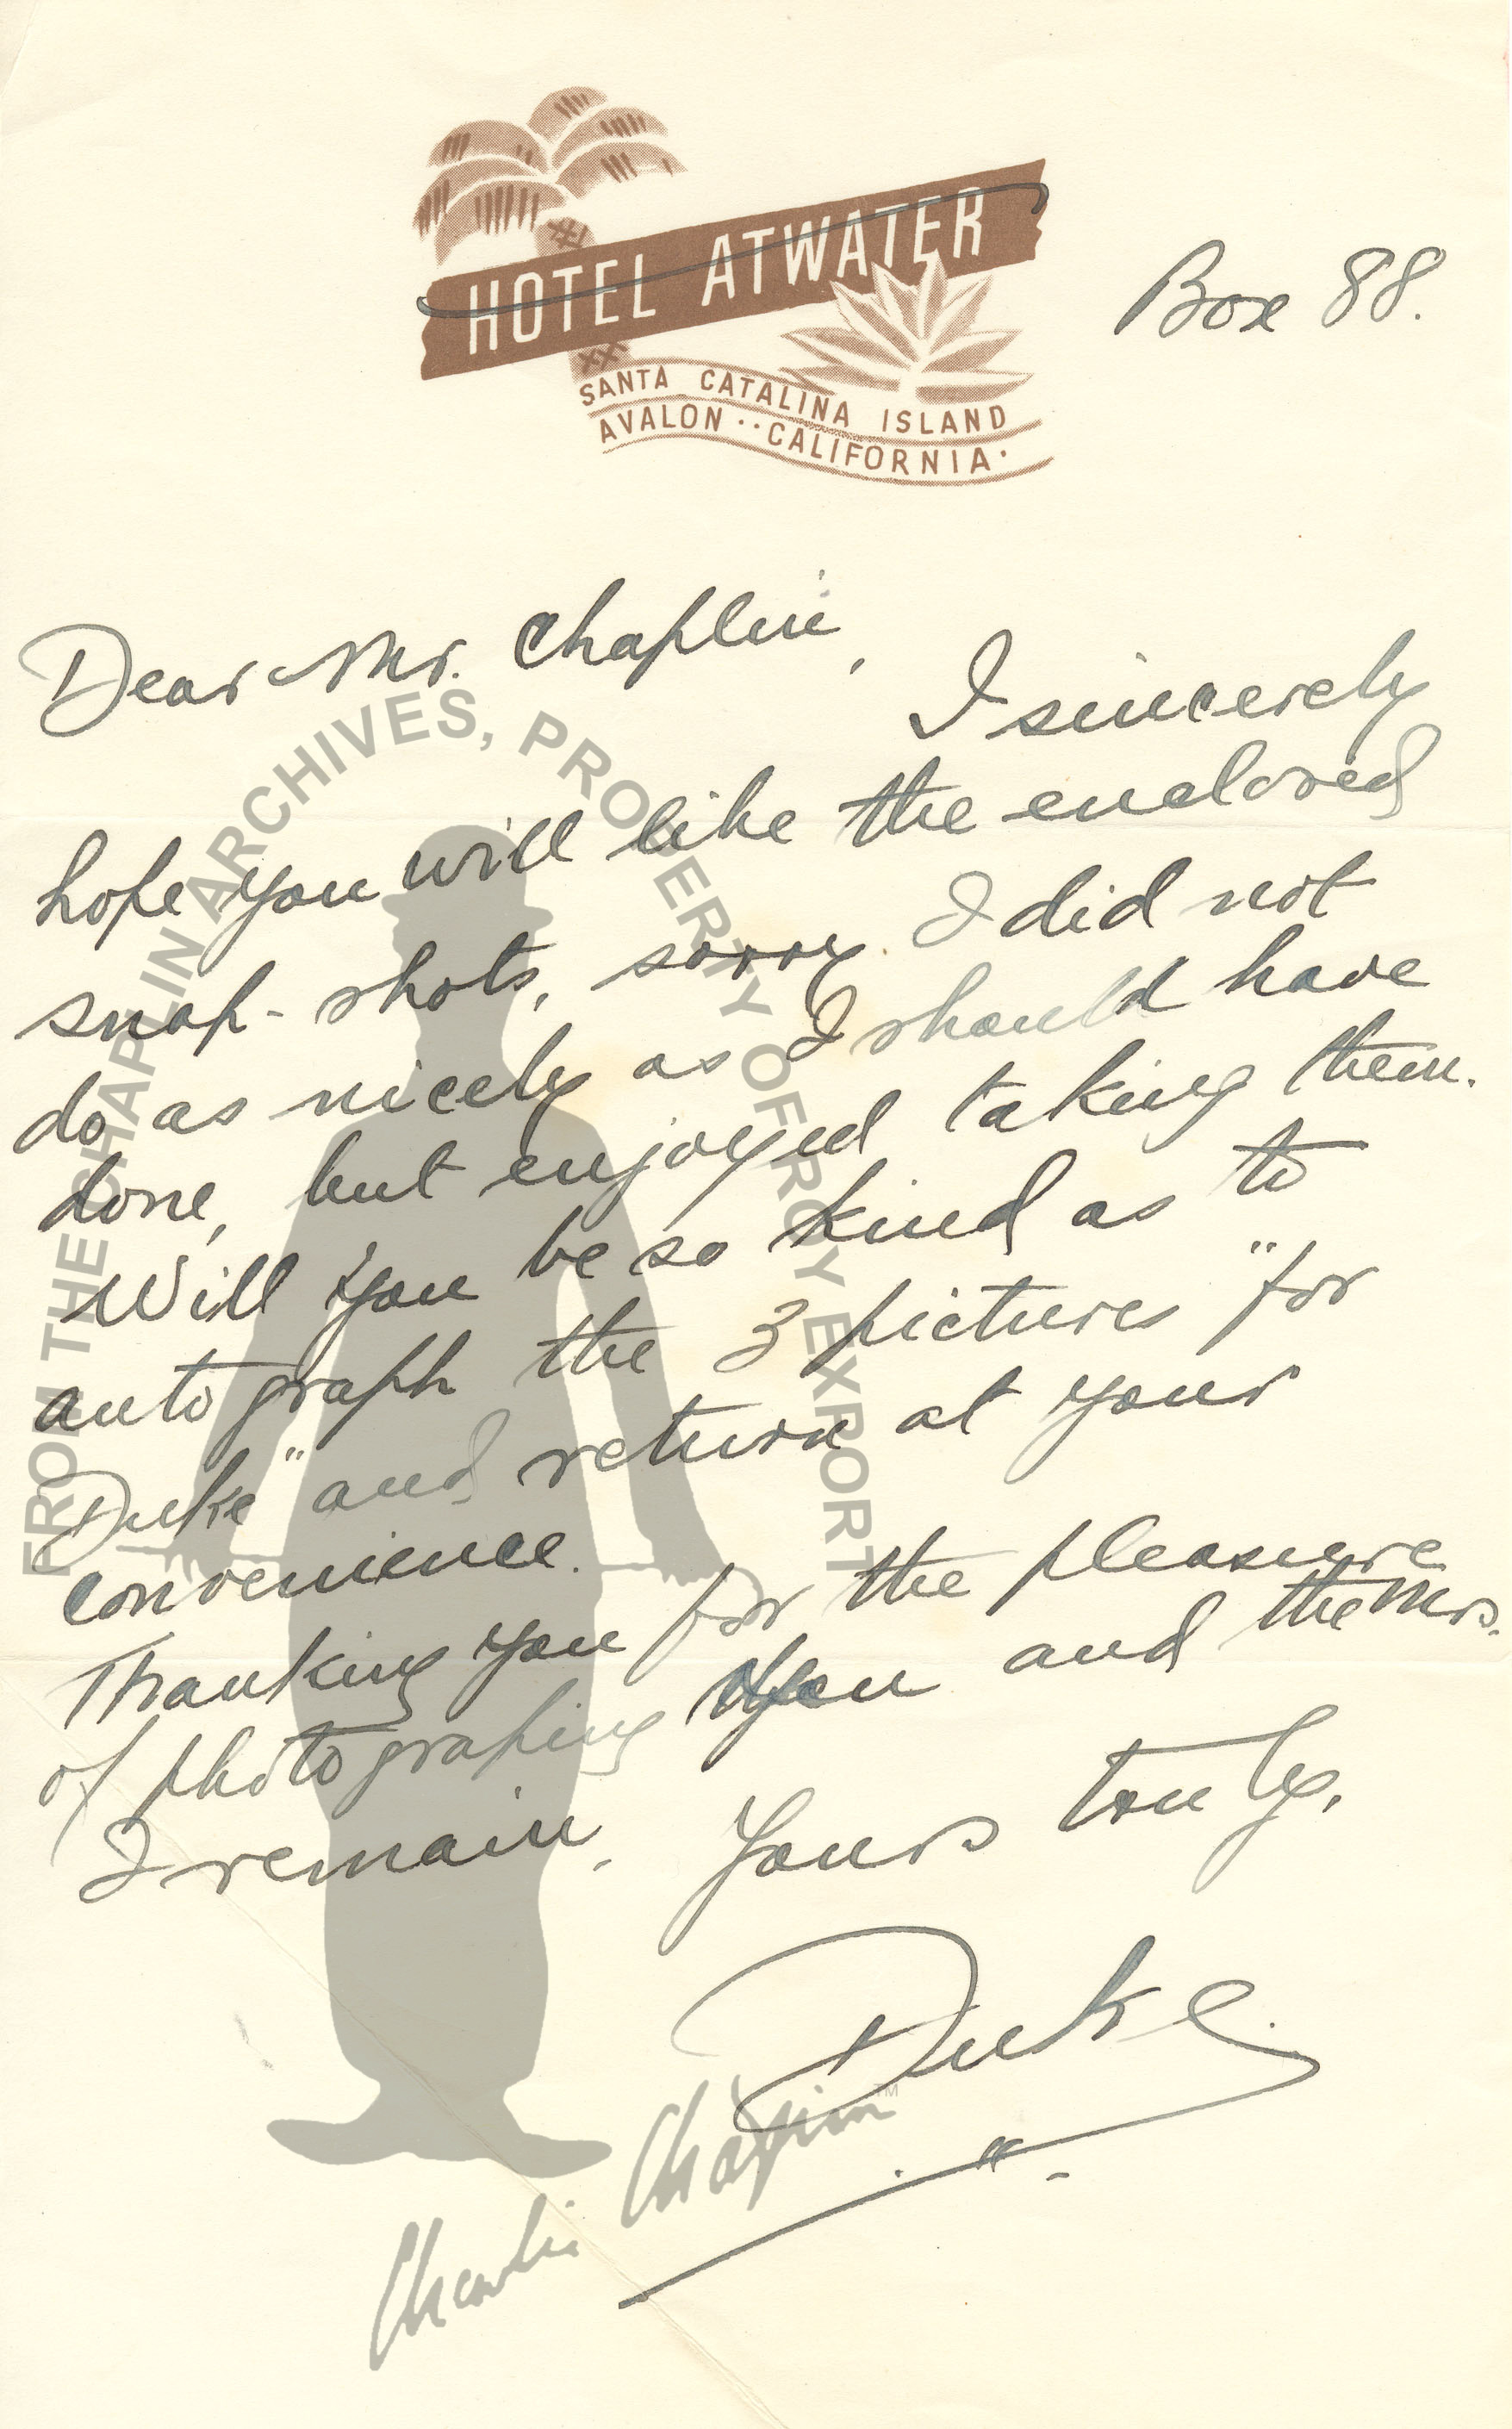 HOTEL ATWATER
SANTA CATALINA ISLAND
AVALON··CALIFORNIA·
Box 88.
Dear Mr. Chaplin,
I sincerely
hope you will like the enclosed
snap-shots, sorry I did not
do as nicely as I should have
done, but enjoyed taking them.
Will you be so kind as to
autograph the 3 pictures "for
Duke" and return at your
convenience.
Thanking you for the pleasure
of photographing you and the Mrs.
I remain, Yours truly,
Duke
FROM THE CHAPLIN ARCHIVES, PROPERTY OF ROY EXPORT
Charlie Chaplin™